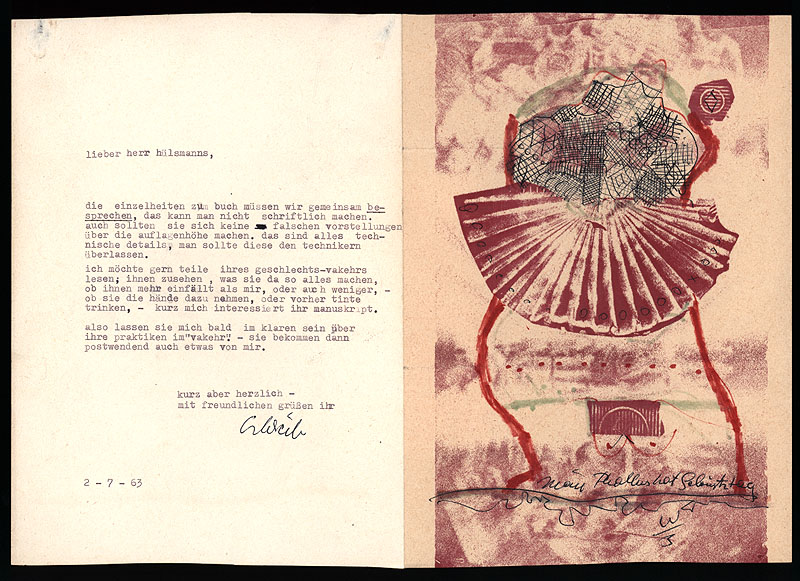 lieber herr hülsmanns,
die einzelheiten zum buch müssen wir gemeinsam be-
sprechen, das kann man nicht schriftlich machen.
auch sollten sie sich keine falschen vorstellungen
über die auflagenhöhe machen. das sind alles tech-
nische details, man sollte diese den technikern
überlassen.
ich möchte gern teile ihres geschlechts-vakehrs
lesen; ihnen zusehen , was sie da so alles machen,
ob ihnen mehr einfällt als mir, oder auch weniger, -
ob sie die hände dazu nehmen, oder vorher tinte
trinken, - kurz mich interessiert ihr manuskript.
also lassen sie mich bald im klaren sein über
ihre praktiken im"vakehr" - sie bekommen dann
postwendend auch etwas von mir.
kurz aber herzlich -
mit freundlichen grüßen ihr
2 - 7 - 63
Mein Phallus hat Geburtstag